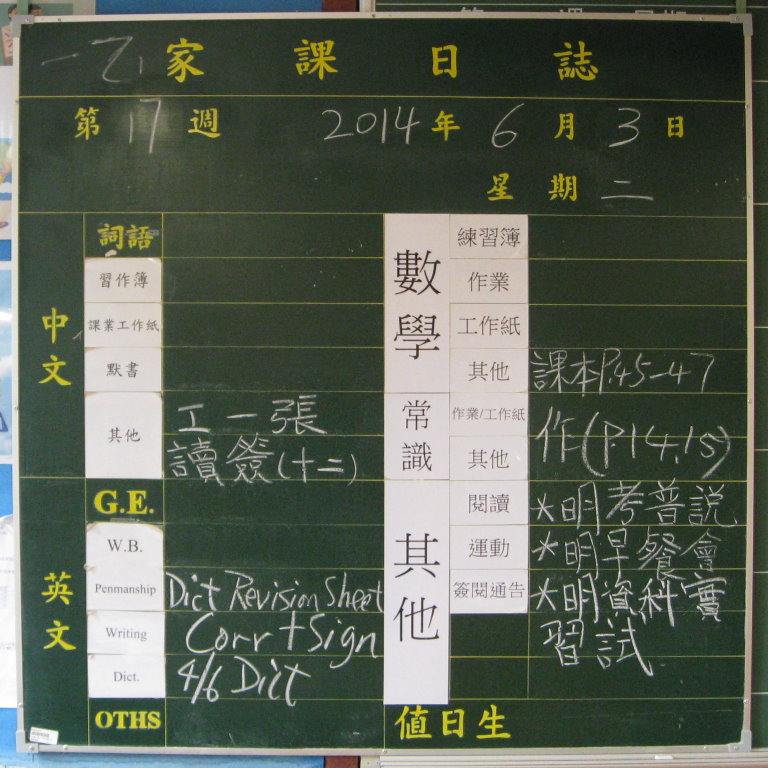 一乙 家課日誌
第17週 2014年6月3日
星期二
中文
詞語
習作簿
課業工作紙
默書
其他 工一張
讀簽(十二)
英文
G.E.
W.B.
Penmanship Dict Revision Sheet
Writing Corr + Sign
Dict. 4/6 Dict
OTHS
數學
練習簿
作業
工作紙
其他 課本P.45-47
常識
作業/工作紙 作(P.14,15)
其他
其他
閱讀 *明考普説
運動 *明早餐會
簽閱通告 *明資科實
習試
值日生